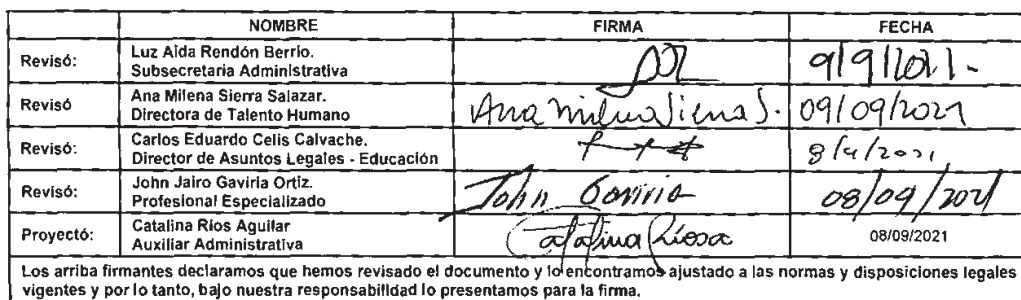 NOMBRE FIRMA FECHA
Revisó: Luz Aida Rendón Berrio.
Subsecretaria Administrativa 9/9/2021.-
Revisó Ana Milena Sierra Salazar.
Directora de Talento Humano Ana Milena Sierra S. 09/09/2021
Revisó: Carlos Eduardo Celis Calvache.
Director de Asuntos Legales - Educación
Revisó: John Jairo Gaviria Ortiz.
Profesional Especializado John Gaviria 08/09/2021
Proyectó: Catalina Ríos Aguilar
Auxiliar Administrativa Catalina Ríosa 08/09/2021
Los arriba firmantes declaramos que hemos revisado el documento y lo encontramos ajustado a las normas y disposiciones legales
vigentes y por lo tanto, bajo nuestra responsabilidad lo presentamos para la firma.